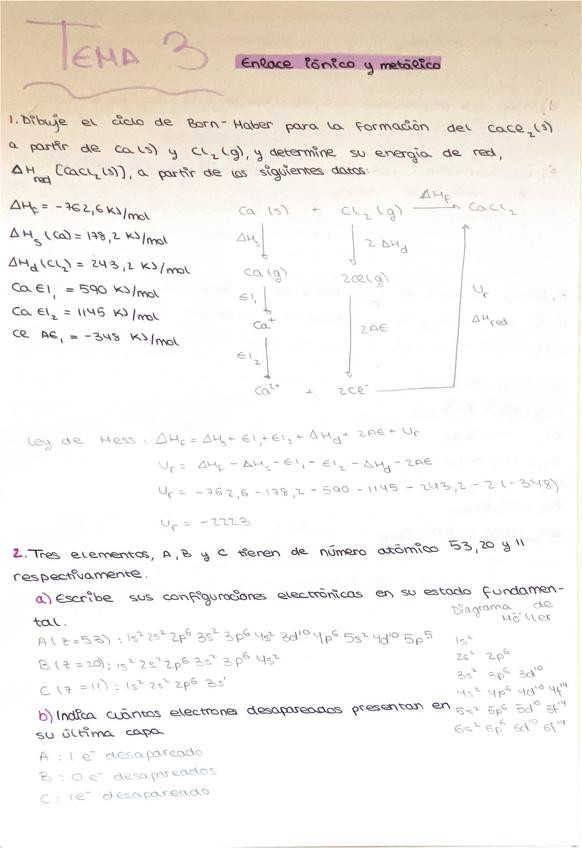 TEMA 3
Enlace iónico y metálico
1. Dibuje el ciclo de Born-Haber para la formación del CaCl₂(s)
a partir de Ca(s) y Cl₂(g), y determine su energía de red,
ΔHred [CaCl₂(s)], a partir de los siguientes datos:
ΔHf = -762,6 KJ/mol
ΔHs (Ca) = 178,2 KJ/mol
ΔHd (Cl₂) = 243,2 KJ/mol
Ca EI₁ = 590 KJ/mol
Ca EI₂ = 1145 KJ/mol
Cl AE₁ = -348 KJ/mol
Ca (s) + Cl₂(g) ΔHf CaCl₂
ΔHs 2 ΔHd
Ca(g) 2Cl(g)
EI₁
Ca⁺ 2AE
EI₂
Ca²⁺ + 2Cl⁻
Ur
ΔHred
Ley de Hess: ΔHf = ΔHs + EI₁ + EI₂ + ΔHd + 2AE + Ur
Ur = ΔHf - ΔHs - EI₁ - EI₂ - ΔHd - 2AE
Ur = -762,6 - 178,2 - 590 - 1145 - 243,2 - 2(-348)
Ur = -2223
2. Tres elementos, A, B y C tienen de número atómico 53, 20 y 11
respectivamente.
a) Escribe sus configuraciones electrónicas en su estado fundamen-
tal.
A (z=53): 1s² 2s² 2p⁶ 3s² 3p⁶ 4s² 3d¹⁰ 4p⁶ 5s² 4d¹⁰ 5p⁵
B (z=20): 1s² 2s² 2p⁶ 3s² 3p⁶ 4s²
C (z=11): 1s² 2s² 2p⁶ 3s¹
Diagrama de
Möller
1s²
2s² 2p⁶
3s² 3p⁶ 3d¹⁰
4s² 4p⁶ 4d¹⁰ 4f¹⁴
5s² 5p⁶ 5d¹⁰ 5f¹⁴
6s² 6p⁶ 6d¹⁰ 6f¹⁴
b) Indica cuántos electrones desapareados presentan en
su última capa
A: 1 e⁻ desapareado
B: 0 e⁻ desapareados
C: 1e⁻ desapareado